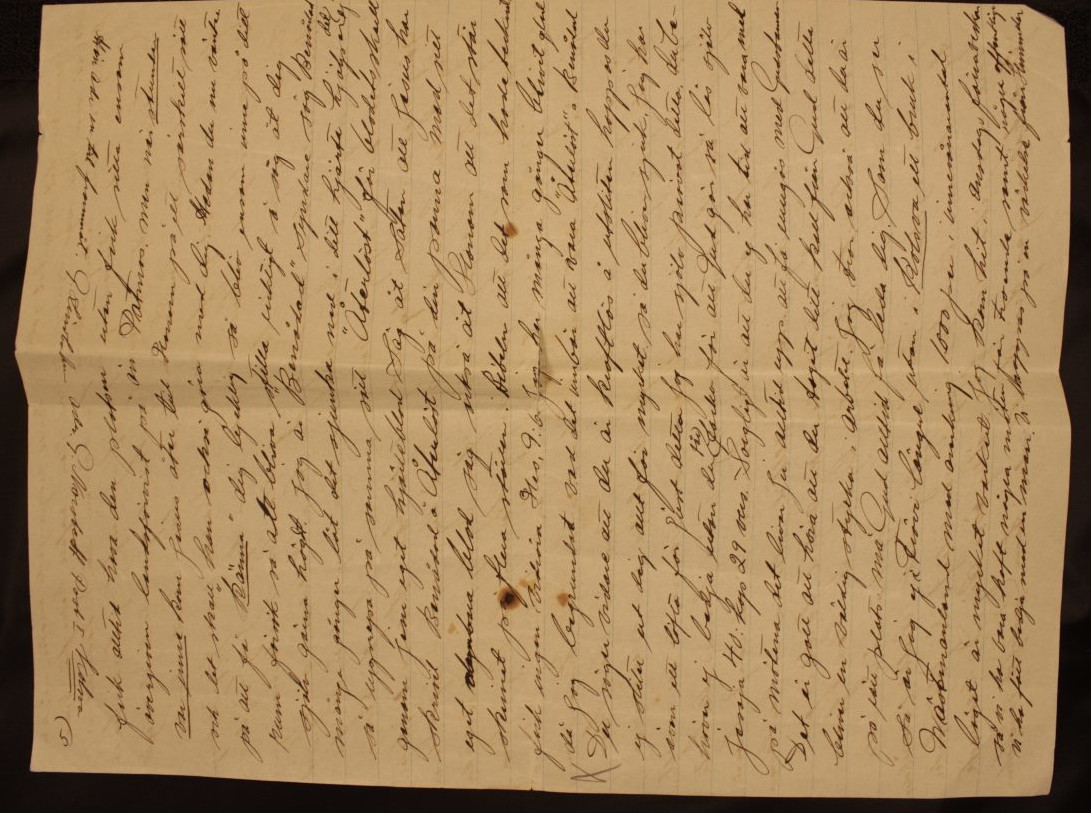 5)
fick alltid hava den platsen utan fick sitta ensam
övergiven landsförvist på ön Patmos. men när stunden
var inne kom Jesus åter till Honom på ett särskilt sätt
och det skall han också göra med dig. Medan du nu väntar
på att få "känna" dig lycklig så bliv ensam inne på ditt
rum försök så att bliva stilla riktigt å säg åt dig
själv gärna högt. Jag är "Benådad" syndare säg Benådad
många gånger låt det sjunka ned i ditt hjärta hjälper det ej
så upprepa på samma sätt "Återlöst" för blodets skull
genom Jesu eget hjärteblod Säg åt Satan att Jesus har
skrivit Benådad å Återlöst på din panna med sitt
eget dyrbara blod säg också åt Honom att det står
skrivet på flera ställen i Bibeln att det som hade tecknet
fick ingen vidröra Hes, 9:6. Jag har många gånger blivit glad
då jag begrundat vad det innebär att vara "Återlöst" o Benådad
Du säger vidare att du är kraftlös å utsliten hoppas du
ej sliter ut dig allt för mycket, så du bliver sjuk. Jag har
även ett löfte för just detta Jag har själv prövat detta, du be-
höver ej bedja utan du får tacka för att Gud gör så läs själv
Jesaja 40: kap 29 vers. Sorgligt är att du ej har tid att vara med
på mötena det livar ju alltid upp att få umgås med Gudsbarnen
Det är gott att höra att du taget ditt kall från Gud detta
bliver en väldig styrka i arbetet. Jag tror också att du är
på rätt plats må Gud alltid få leda dig. Som du ser
så är jag ej i längre utan i Kolsva ett bruk i
Wästmanland med omkring 1000 per i innevånarantal
läget är mycket vackert. Jag kom hit i onsdags
så vi ha bara haft några möten för troende samt några offentliga
vi ha fått bedja med en man. Vi hoppas på en väckelse från Himmelen